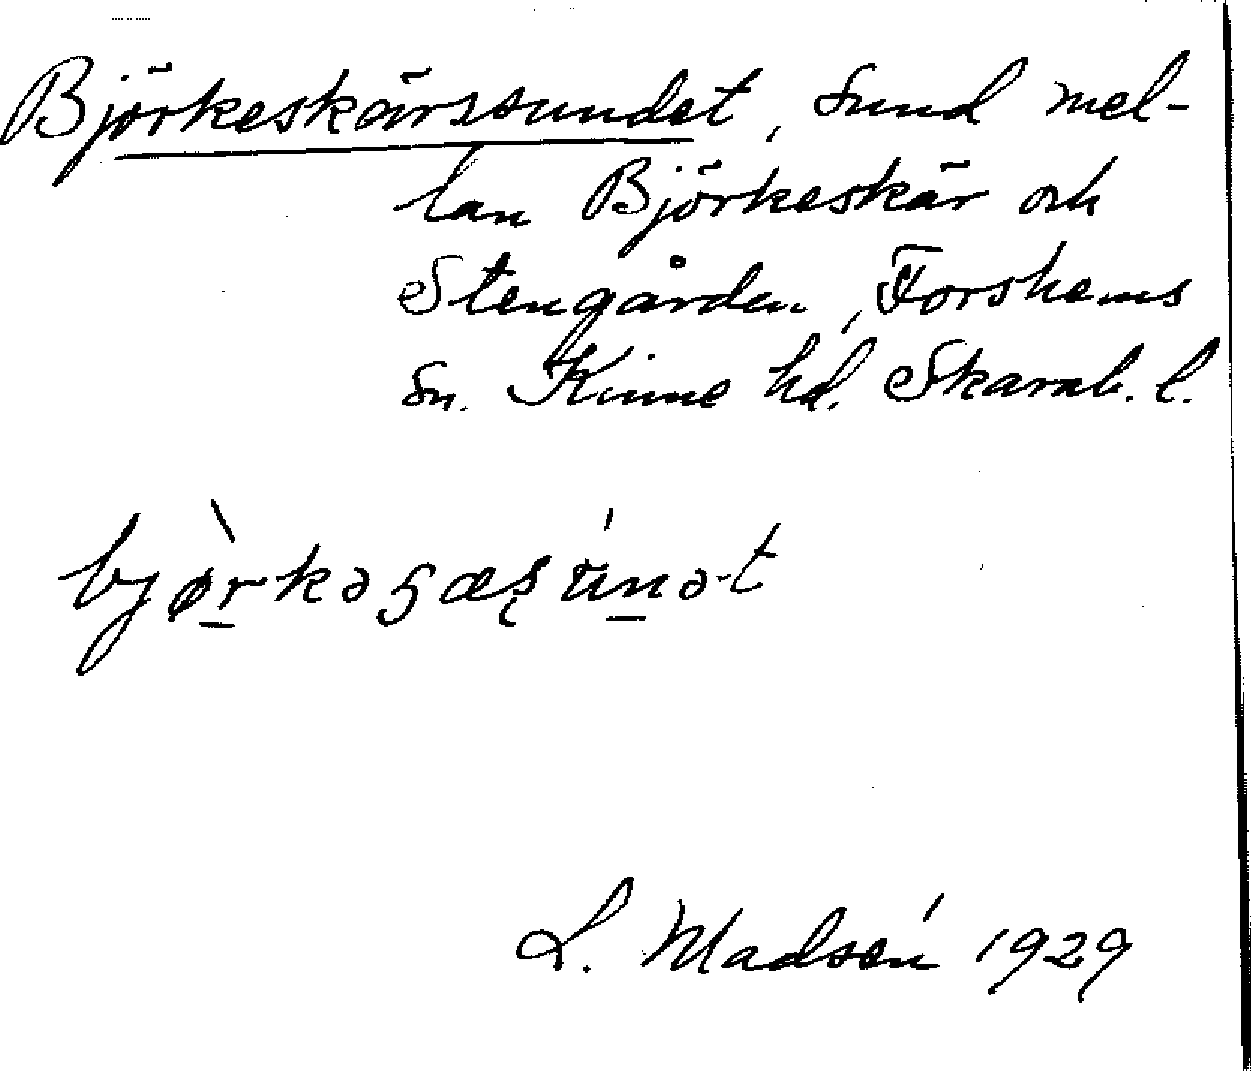 Björkeskärssundet, sund mel-
lan Björkeskär och
Stengården, Forshems
sn. Kinne hd. Skarab. l.
bjø̀r̲kəʂæʂún̲ət
L. Madsén 1929